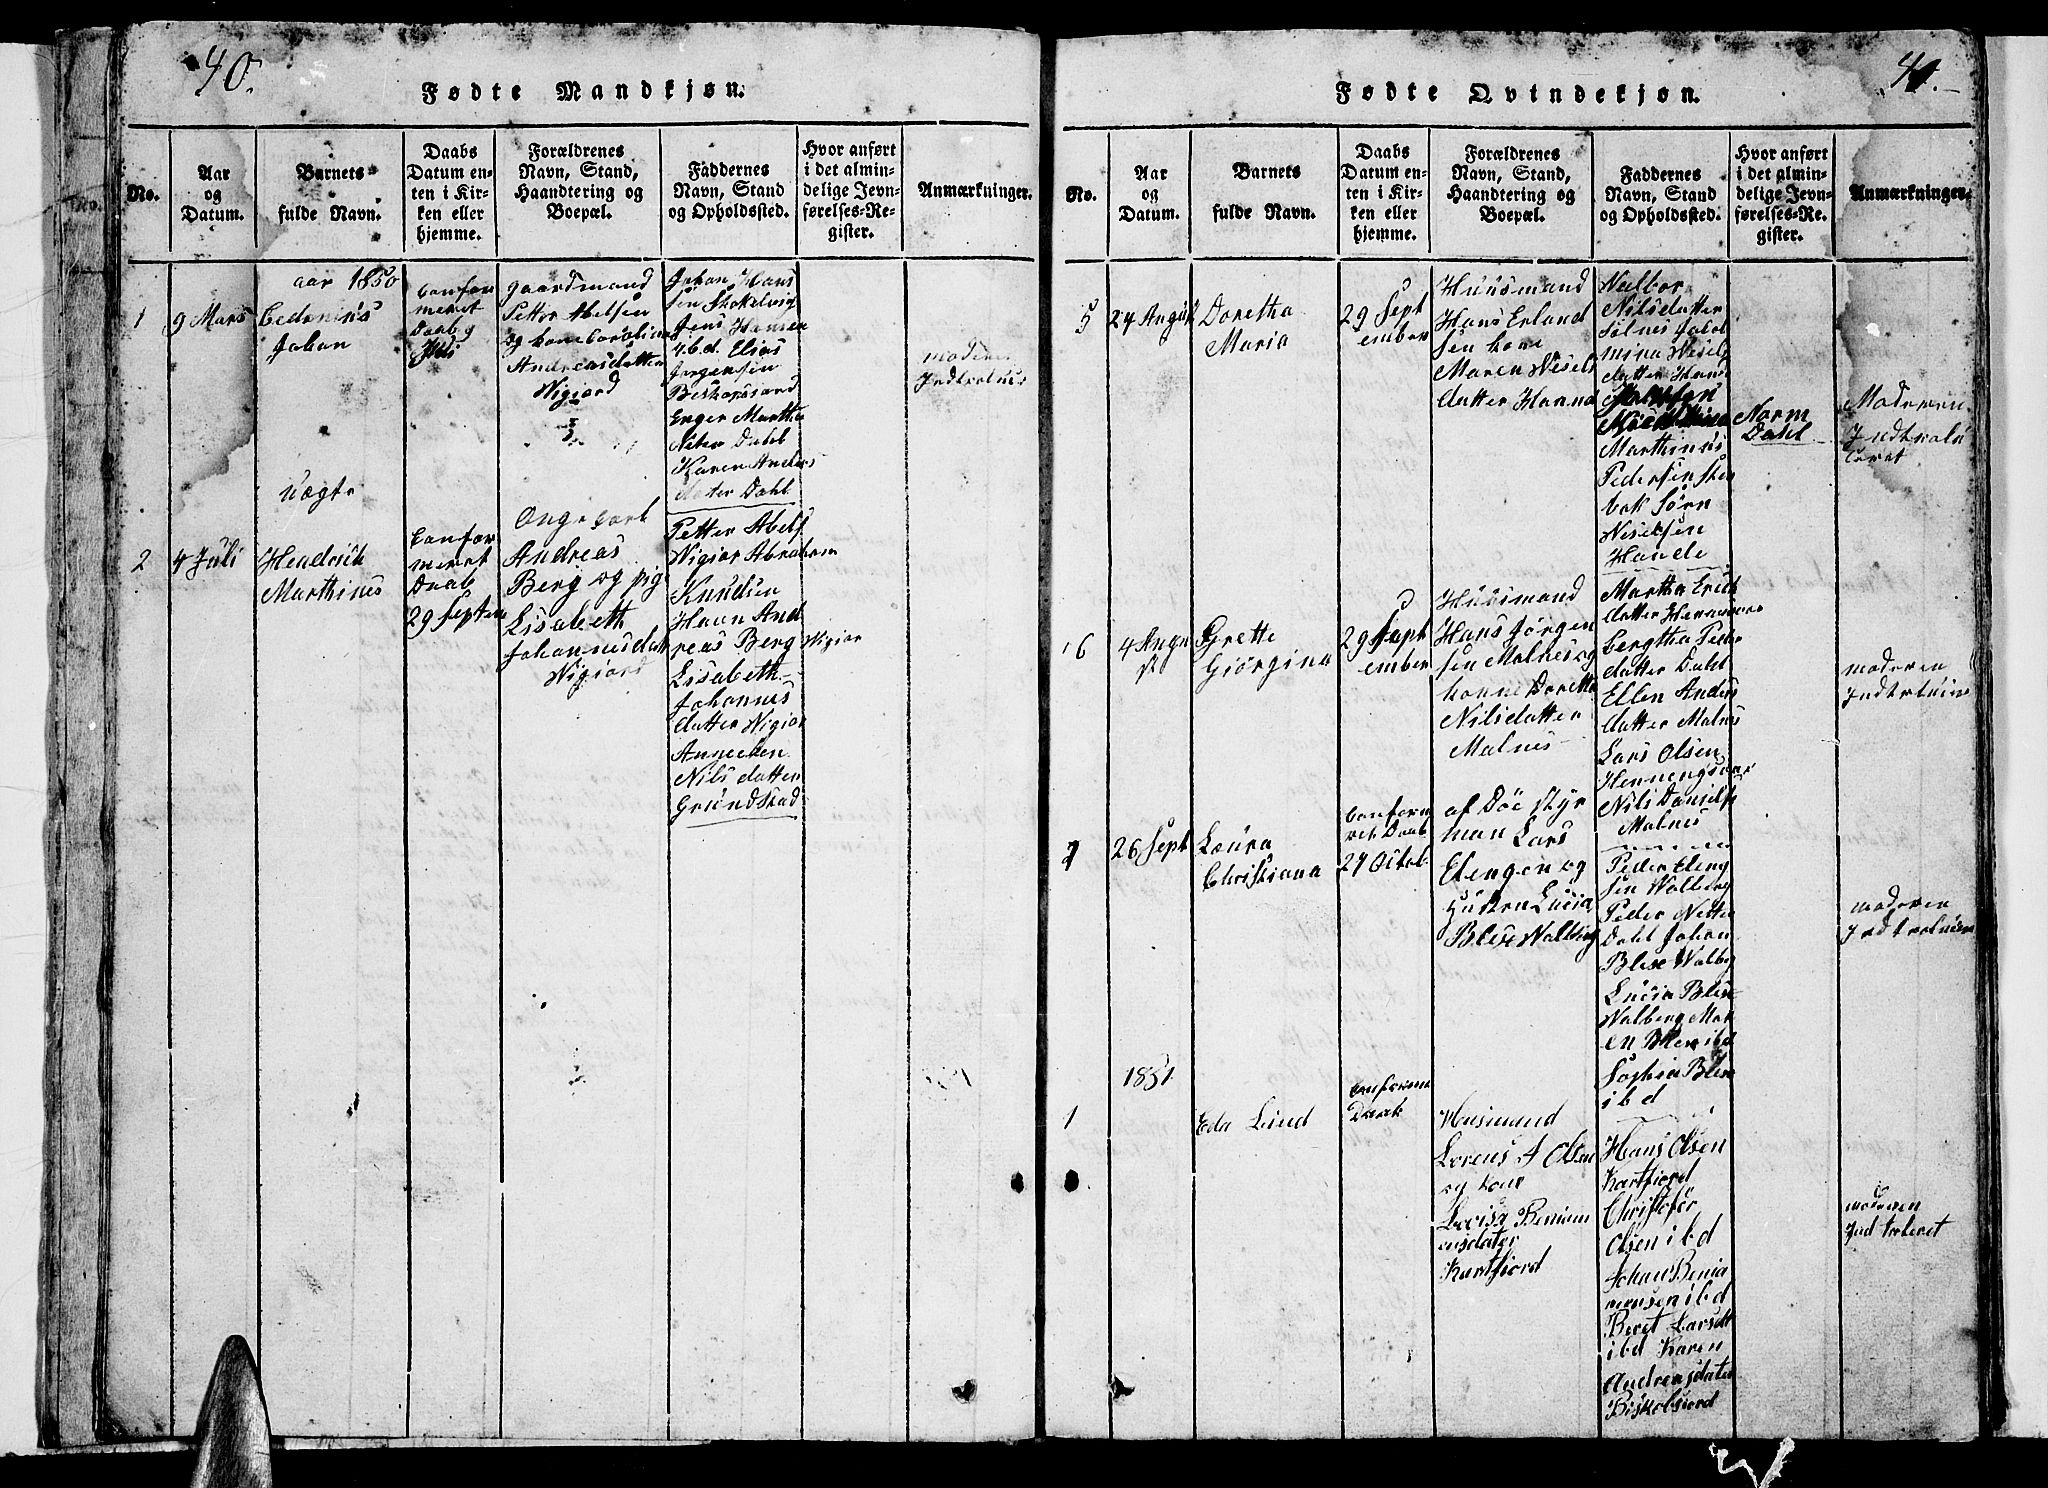 40.
Fødte Mandkjøn.
No.
Aar
og
Datum.
Barnets
fulde Navn.
Daabs
Datum en-
ten i Kir-
ken eller
hjemme.
Forældrenes
Navn, Stand,
Haandtering og
Boepæl.
Faddernes
Navn, Stand
og Opholdssted.
Hvor anført
i det almin-
delige Jevn-
førelses-Re-
gister.
Anmærkninger.
aar 1850
1
9 Mars
Johan
confor
meret
Daab
gaardmand
Petter Abelsen
og kone Carolina
Andreasdatter
Nigiord
Johan Hans
sen Skokelvig
Jens Hansen
i.b.d. Elias
Jørgensen
Enger Martha
Peter Dahl
Karen Anders
dater Dahl
moderen
uægte
2
4 Juli
Hendrich
Marthinus
confor
meret
Daab
29 Septem
Ongecarl
Andreas
Berg og pige
Lisabeth
Johannesdatt
Nigiord
Petter Abels
Nigior Abraham
Knudsen
Havn And
reas Berg
Lisabeth
Johannes
datter Nigior
Annecken
Nils datter
Grundstad
Nigior
41.
Fødte Qvindekjøn.
No.
Aar
og
Datum.
Barnets
fulde Navn.
Daabs
Datum en-
ten i Kir-
ken eller
hjemme.
Forældrenes
Navn, Stand,
Haandtering og
Boepæl.
Faddernes
Navn, Stand
og Opholdssted.
Hvor anført
i det almin-
delige Jevn-
førelses-Re-
gister.
Anmærkninger.
5
24 August
Doretha
Maria
29 Sept
ember
Huusmand
Hans Erland
sen kone
Maren Nisels
datter Hanna
Valbor
Nilsdatter
Solnes Jacob
mina Nisels
datter Hans
Marthinus
Pedersen Sten
bak Sørn
Niselsen
Hande
Norm
Dahl
Moderen
Indtrolu
ceret
6
4 Augu
st
Grette
Giørgina
29 Sept
ember
Huusmand
Hans Jørgen
sen Malnes og
konne Doretta
Nilsdatter
Malnes
Martha Erich
datter
bergtha Peder
datter Dahl
Ellen Anders
datter Malnes
Lars Olsen
Nils Daniels
Malnes
moderen
7
26 Sept
Loura
Christiana
conform
ret Daab
27 Octob.
af Døe styr
man Lars
Elengen og
Hustru Lucia
Blese Valberg
Peder Eleng
sen Valberg
Peder Nette
Dahl Johan
Blese Walby
Lucia Blese
Valberg Mar
en Blese ibd
Sophia Blese
ibd
moderen
1851
1
Eda Lind
conform
Daab
Husmand
Lorens A Olsen
og kone
Lovisa Beniam
ensdater
Kartfiord
Hans Olsen
Kartfiord
Christofer
Olsen ibd
Johan Benia
mensen ibd
Beret Larsdt
ibd Karen
Andreasdater
Biskobsiord
moderen
Indtroleret